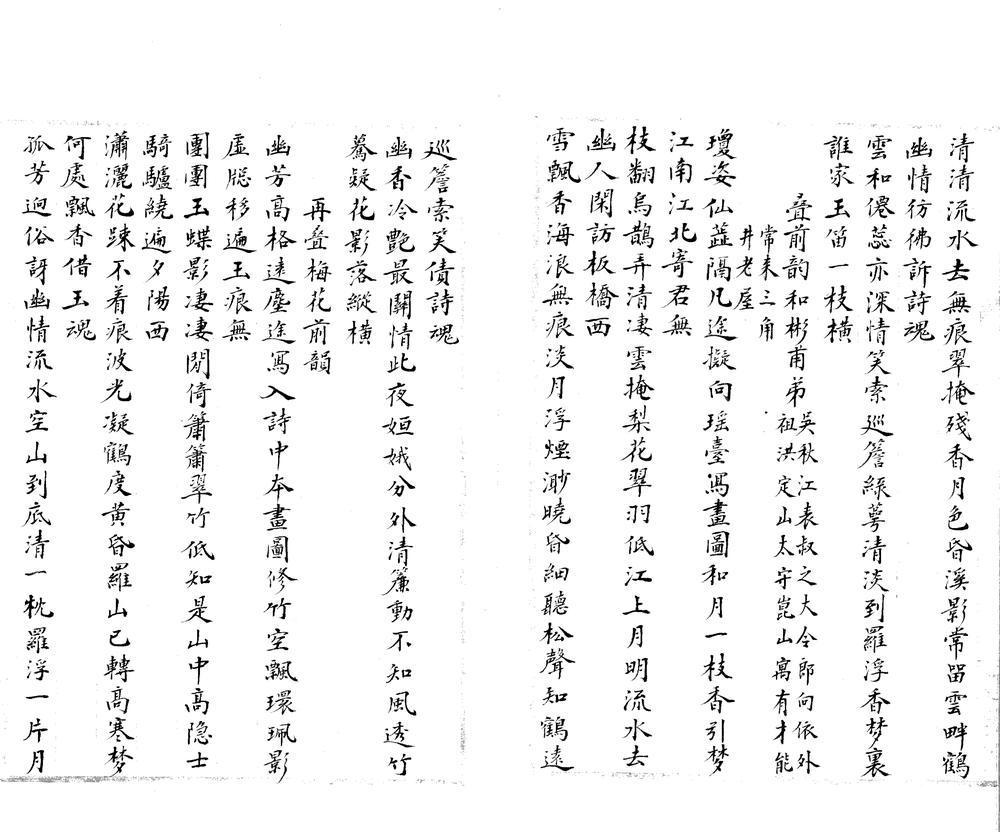 清清流水去無痕翠掩殘香月色昏溪影常留雲畔鶴
幽情彷彿訴詩魂
雲和僊蕊亦深情笑索巡簷綠萼清淡到羅浮香梦裏
誰家玉笛一枝橫
叠前韵和彬甫弟吳秋江表叔之大令郎向依外
祖洪定山太守崑山寓有才能
常耒三角
井老屋
瓊姿仙蕋隔凡途擬向瑶臺寫畫圖和月一枝香引梦
江南江北寄君無
枝翻烏鵲弄清淒雲掩梨花翠羽低江上月明流水去
幽人閑訪板橋西
雪飄香海浪無痕淡月浮煙渺曉昏細聽松聲知鶴遠
巡簷索笑債詩魂
幽香冷艷最關情此夜姮娥分外清簾動不知風透竹
驀疑花影落縱橫
再叠梅花前韻
幽芳高格遠塵途寫入詩中本畫圖修竹空飄環珮影
虛牕移遍玉痕無
團團玉蝶影凄凄閒倚簫簫翠竹低知是山中高隐士
騎驢繞遍夕陽西
瀟灑花踈不着痕波光凝鶴度黄昏羅山已轉高寒梦
何處飄香借玉魂
孤芳迥俗訝幽情流水空山到底清一枕羅浮一片月